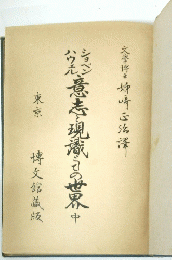 文學博士 姉崎正治譯
ショペン
ハウエル
意志と現識としての世界 中
東京 博文館蔵版